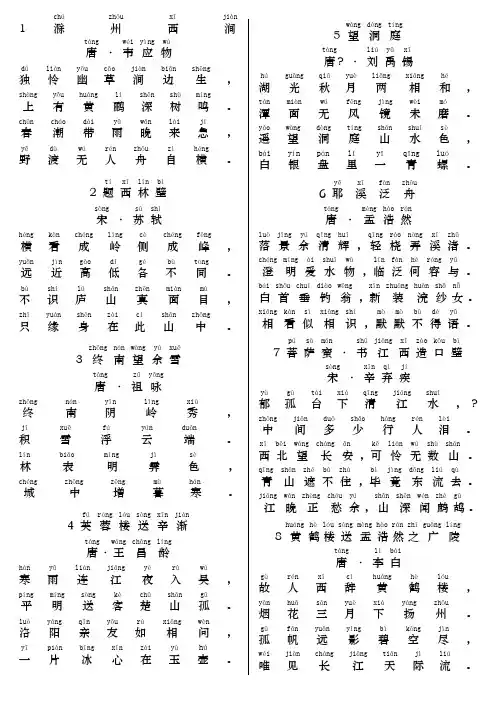 chú zhōu xī jiàn
1 滁 州 西 涧
táng wéi yìng wù
唐 · 韦 应 物
dú lián yōu cǎo jiàn biān shēng
独 怜 幽 草 涧 边 生 ，
shàng yǒu huáng lí shēn shù míng
上 有 黄 鹂 深 树 鸣 .
chūn cháo dài yǔ wǎn lái jí
春 潮 带 雨 晚 来 急 ，
yě dù wú rén zhōu zì héng
野 渡 无 人 舟 自 横 .
tí xī lín bì
2 题 西 林 壁
sòng sū shì
宋 · 苏 轼
héng kàn chéng lǐng cè chéng fēng
横 看 成 岭 侧 成 峰 ，
yuǎn jìn gāo dī gè bù tóng
远 近 高 低 各 不 同 .
bù shí lú shān zhēn miàn mù
不 识 庐 山 真 面 目 ，
zhǐ yuán shēn zài cǐ shān zhōng
只 缘 身 在 此 山 中 .
zhōng nán wàng yú xuě
3 终 南 望 余 雪
táng zǔ yǒng
唐 · 祖 咏
zhōng nán yīn lǐng xiù
终 南 阴 岭 秀 ，
jī xuě fú yún duān
积 雪 浮 云 端 .
lín biǎo míng jì sè
林 表 明 霁 色 ，
chéng zhōng zēng mù hán
城 中 增 暮 寒 .
fú róng lóu sòng xīn jiàn
4 芙 蓉 楼 送 辛 渐
táng wáng chāng líng
唐 · 王 昌 龄
hán yǔ lián jiāng yè rù wú
寒 雨 连 江 夜 入 吴 ，
píng míng sòng kè chǔ shān gū
平 明 送 客 楚 山 孤 .
luò yáng qīn yǒu rú xiāng wèn
洛 阳 亲 友 如 相 问 ，
yī piàn bīng xīn zài yù hú
一 片 冰 心 在 玉 壶 .
wàng dòng tíng
5 望 洞 庭
táng liú yǔ xī
唐 ? · 刘 禹 锡
hú guāng qiū yuè liǎng xiāng hé
湖 光 秋 月 两 相 和 ，
tán miàn wú fēng jìng wèi mó
潭 面 无 风 镜 未 磨 .
yáo wàng dòng tíng shān shuǐ sè
遥 望 洞 庭 山 水 色 ，
bái yín pán lǐ yī qīng luó
白 银 盘 里 一 青 螺 .
yē xī fàn zhōu
6 耶 溪 泛 舟
táng mèng hào rán
唐 · 孟 浩 然
luò jǐng yú qīng huī qīng ráo nòng xī zhǔ
落 景 余 清 辉 ，轻 桡 弄 溪 渚 .
chéng míng ài shuǐ wù lín fàn hé róng yǔ
澄 明 爱 水 物 ，临 泛 何 容 与 .
bái shǒu chuí diào wēng xīn zhuāng huàn shā nǚ
白 首 垂 钓 翁 ，新 装 浣 纱 女 .
xiāng kàn sì xiāng shí mò mò bù dé yǔ
相 看 似 相 识 ，默 默 不 得 语 .
pú sà mán shū jiāng xī zào kǒu bì
7 菩 萨 蛮 · 书 江 西 造 口 壁
sòng xīn qì jí
宋 · 辛 弃 疾
yù gū tái xià qīng jiāng shuǐ
郁 孤 台 下 清 江 水 ，?
zhōng jiān duō shǎo háng rén lèi
中 间 多 少 行 人 泪 .
xī běi wàng cháng ān kě lián wú shù shān
西 北 望 长 安 ，可 怜 无 数 山 .
qīng shān zhē bù zhù bì jìng dōng liú qù
青 山 遮 不 住 ，毕 竟 东 流 去 .
jiāng wǎn zhèng chóu yú shān shēn wén zhè gū
江 晚 正 愁 余 ，山 深 闻 鹧 鸪 .
huáng hè lóu sòng mèng hào rán zhī guǎng líng
8 黄 鹤 楼 送 孟 浩 然 之 广 陵
táng lǐ bái
唐 · 李 白
gù rén xī cí huáng hè lóu
故 人 西 辞 黄 鹤 楼 ，
yān huā sān yuè xià yáng zhōu
烟 花 三 月 下 扬 州 .
gū fān yuǎn yǐng bì kōng jìn
孤 帆 远 影 碧 空 尽 ，
wéi jiàn cháng jiāng tiān jì liú
唯 见 长 江 天 际 流 .